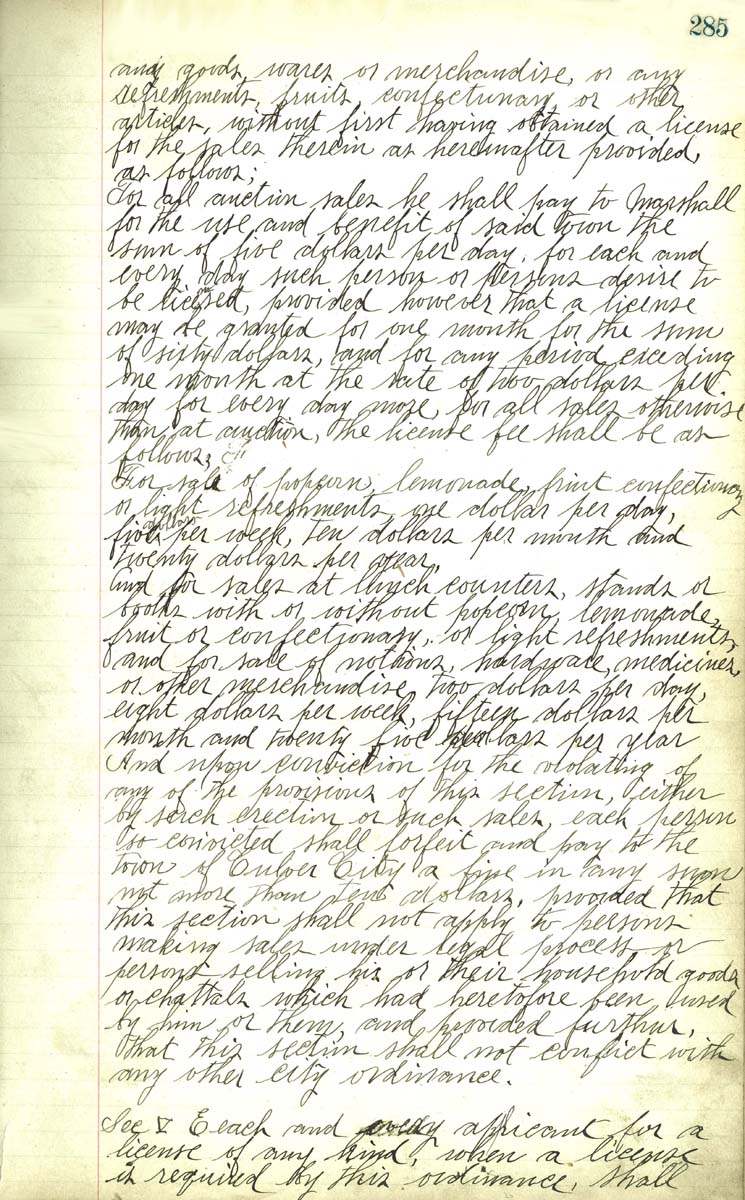 285
any goods, wares or merchandise, or any
refreshments, fruits, confectionary, or other
articles, without first having obtained a license
for the sales therein as hereinafter provided,
as follows;
For all auction sales he shall pay to Marshall
for the use and benefit of said town the
sum of five dollars per day, for each and
every day such person or persons desire to
be licensed, provided however that a license
may be granted for one month for the sum
of sixty dollars, and for any period exceding
one month at the rate of two dollars per
day for every day more, for all sales otherwise
than at auction, the license fee shall be as
follows;
For sale of popcorn, lemonade, fruit confectionary
or light refreshments, one dollar per day,
five dollars per week, ten dollars per month and
twenty dollars per year,
And for sales at lunch counters, stands or
booths with or without popcorn, lemonade,
fruit or confectionary, or light refreshments,
and for sale of notions, hardware, medicines,
or other merchandise, two dollars per day,
eight dollars per week, fifteen dollars per
month and twenty five dollars per year
And upon conviction for the violating of
any of the provisions of this section, either
by such erection or such sales, each person
so convicted shall forfeit and pay to the
town of Culver City a fine in any sum
not more than ten dollars, provided that
this section shall not apply to persons
making sales under legal process or
persons selling his or their household goods
or chattals which had heretofore been used
by him or them, and provided furthur,
that this section shall not conflict with
any other city ordinance.
Sec V Eeach and every applicant for a
license of any kind, when a license
is required by this ordinance, shall